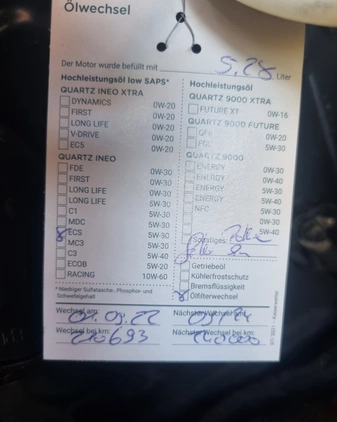 Ölwechsel
Der Motor wurde befüllt mit 5,28 Liter
Hochleistungsöl low SAPS*
QUARTZ INEO XTRA
DYNAMICS 0W-20
FIRST 0W-20
LONG LIFE 0W-20
V-DRIVE 0W-20
EC5 0W-20
QUARTZ INEO
FDE 0W-30
FIRST 0W-30
LONG LIFE 0W-30
LONG LIFE 5W-30
C1 5W-30
MDC 5W-30
ECS 5W-30
MC3 5W-30
C3 5W-40
ECOB 5W-20
RACING 10W-60
* Niedriger Sulfatasche-, Phosphor- und
Schwefelgehalt
Hochleistungsöl
QUARTZ 9000 XTRA
FUTURE XT 0W-16
QUARTZ 9000 FUTURE
0W-20
5W-30
QUARTZ 9000
ENERGY 0W-30
ENERGY 0W-40
ENERGY 5W-30
ENERGY 5W-40
NFC 5W-30
5W-40
Sonstiges:
Getriebeöl
Kühlerfrostschutz
Bremsflüssigkeit
Ölfilterwechsel
Wechsel am:
Nächster Wechsel am:
Wechsel bei km: 210693
Nächster Wechsel bei km: